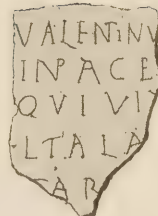 VALENTINV
IN PACE
QVIVIT
LTALA
AR